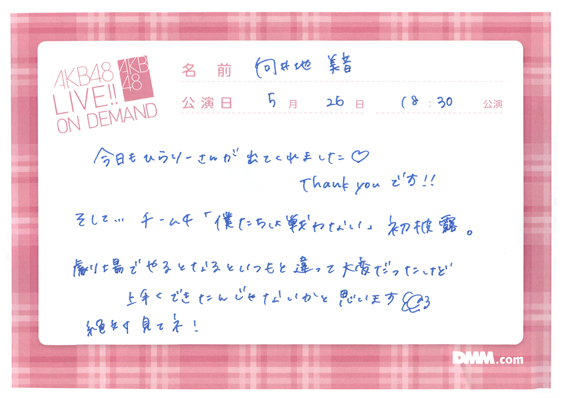 AKB48
LIVE!!
ON DEMAND
AKB
48
名前 向井地 美音
公演日 5月 26日 18:30 公演
今日もひらりーさんが出てくれました♡
Thank youです!!
そして… チーム4「僕たちは戦わない」初披露。
劇場でやるとなるといつもと違って大変だったけど
上手くできたんじゃないかと思います
絶対見てネ!
DMM.com